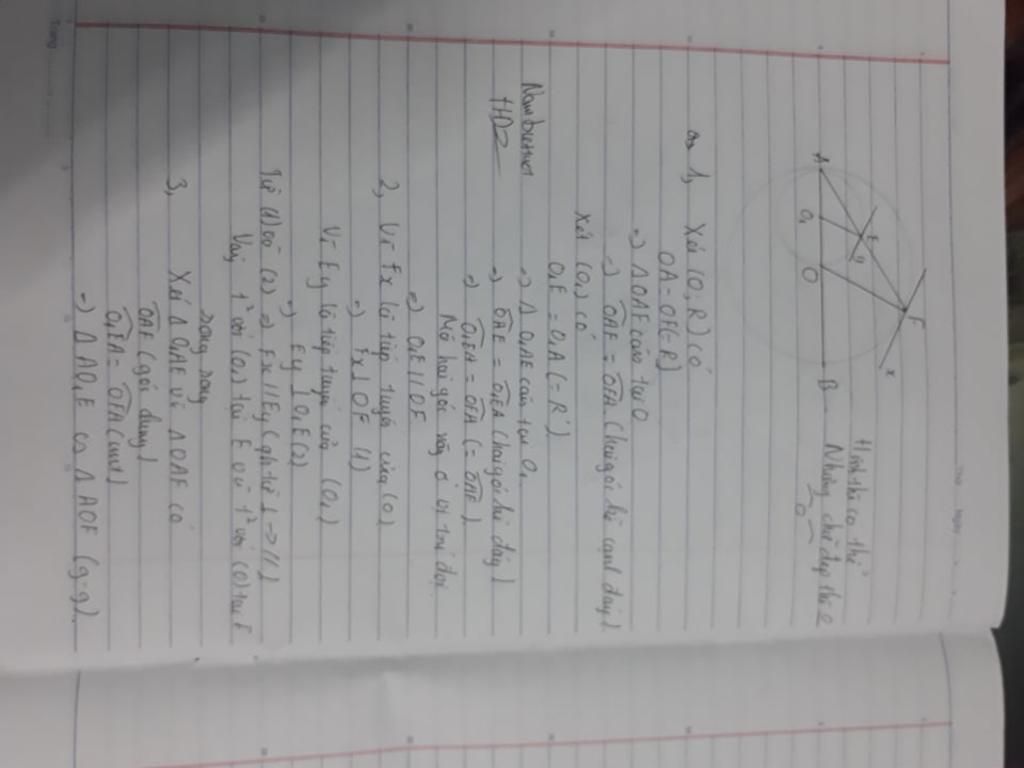 Thứ Ngày
Trang
x
F
E
y
A
O₁
O
B
Hình thì có thể
Nhưng chữ đẹp thì
1, Xét (O; R) có
OA = OF (= R)
=> Δ OAF cân tại O
=> OAF = OFA (hai góc kề cạnh đáy)
Xét (O₁) có
O₁E = O₁A (= R')
=> Δ O₁AE cân tại O₁
=> O₁AE = O₁EA (hai góc kề đáy)
=> O₁EA = OFA (= OAF)
Number
HD2
Mà hai góc này ở vị trí đọi
=> O₁E // OF
2, Vì Fx là tiếp tuyến của (O)
=> Fx ⊥ OF (1)
Vì Ey là tiếp tuyến của (O₁)
=> Ey ⊥ O₁E (2)
Từ (1) và (2) => Fx // Ey (qh từ ⊥ -> //)
Vậy t² với (O₁) tại E và t² với (O) tại F
song song
3, Xét Δ O₁AE và Δ OAF có
OAF (góc chung)
O₁EA = OFA (cmt)
=> Δ AO₁E ∽ Δ AOF (g-g)